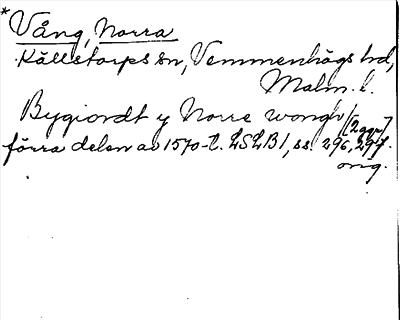 * Vång, Norra
Källstorps sn, Vemmenhögs hd,
Malm. l.
Bygiordt y Norre wongh [2 ggr]
förra delen av 1570-t. LSLB1, ss. 296, 297.
orig.